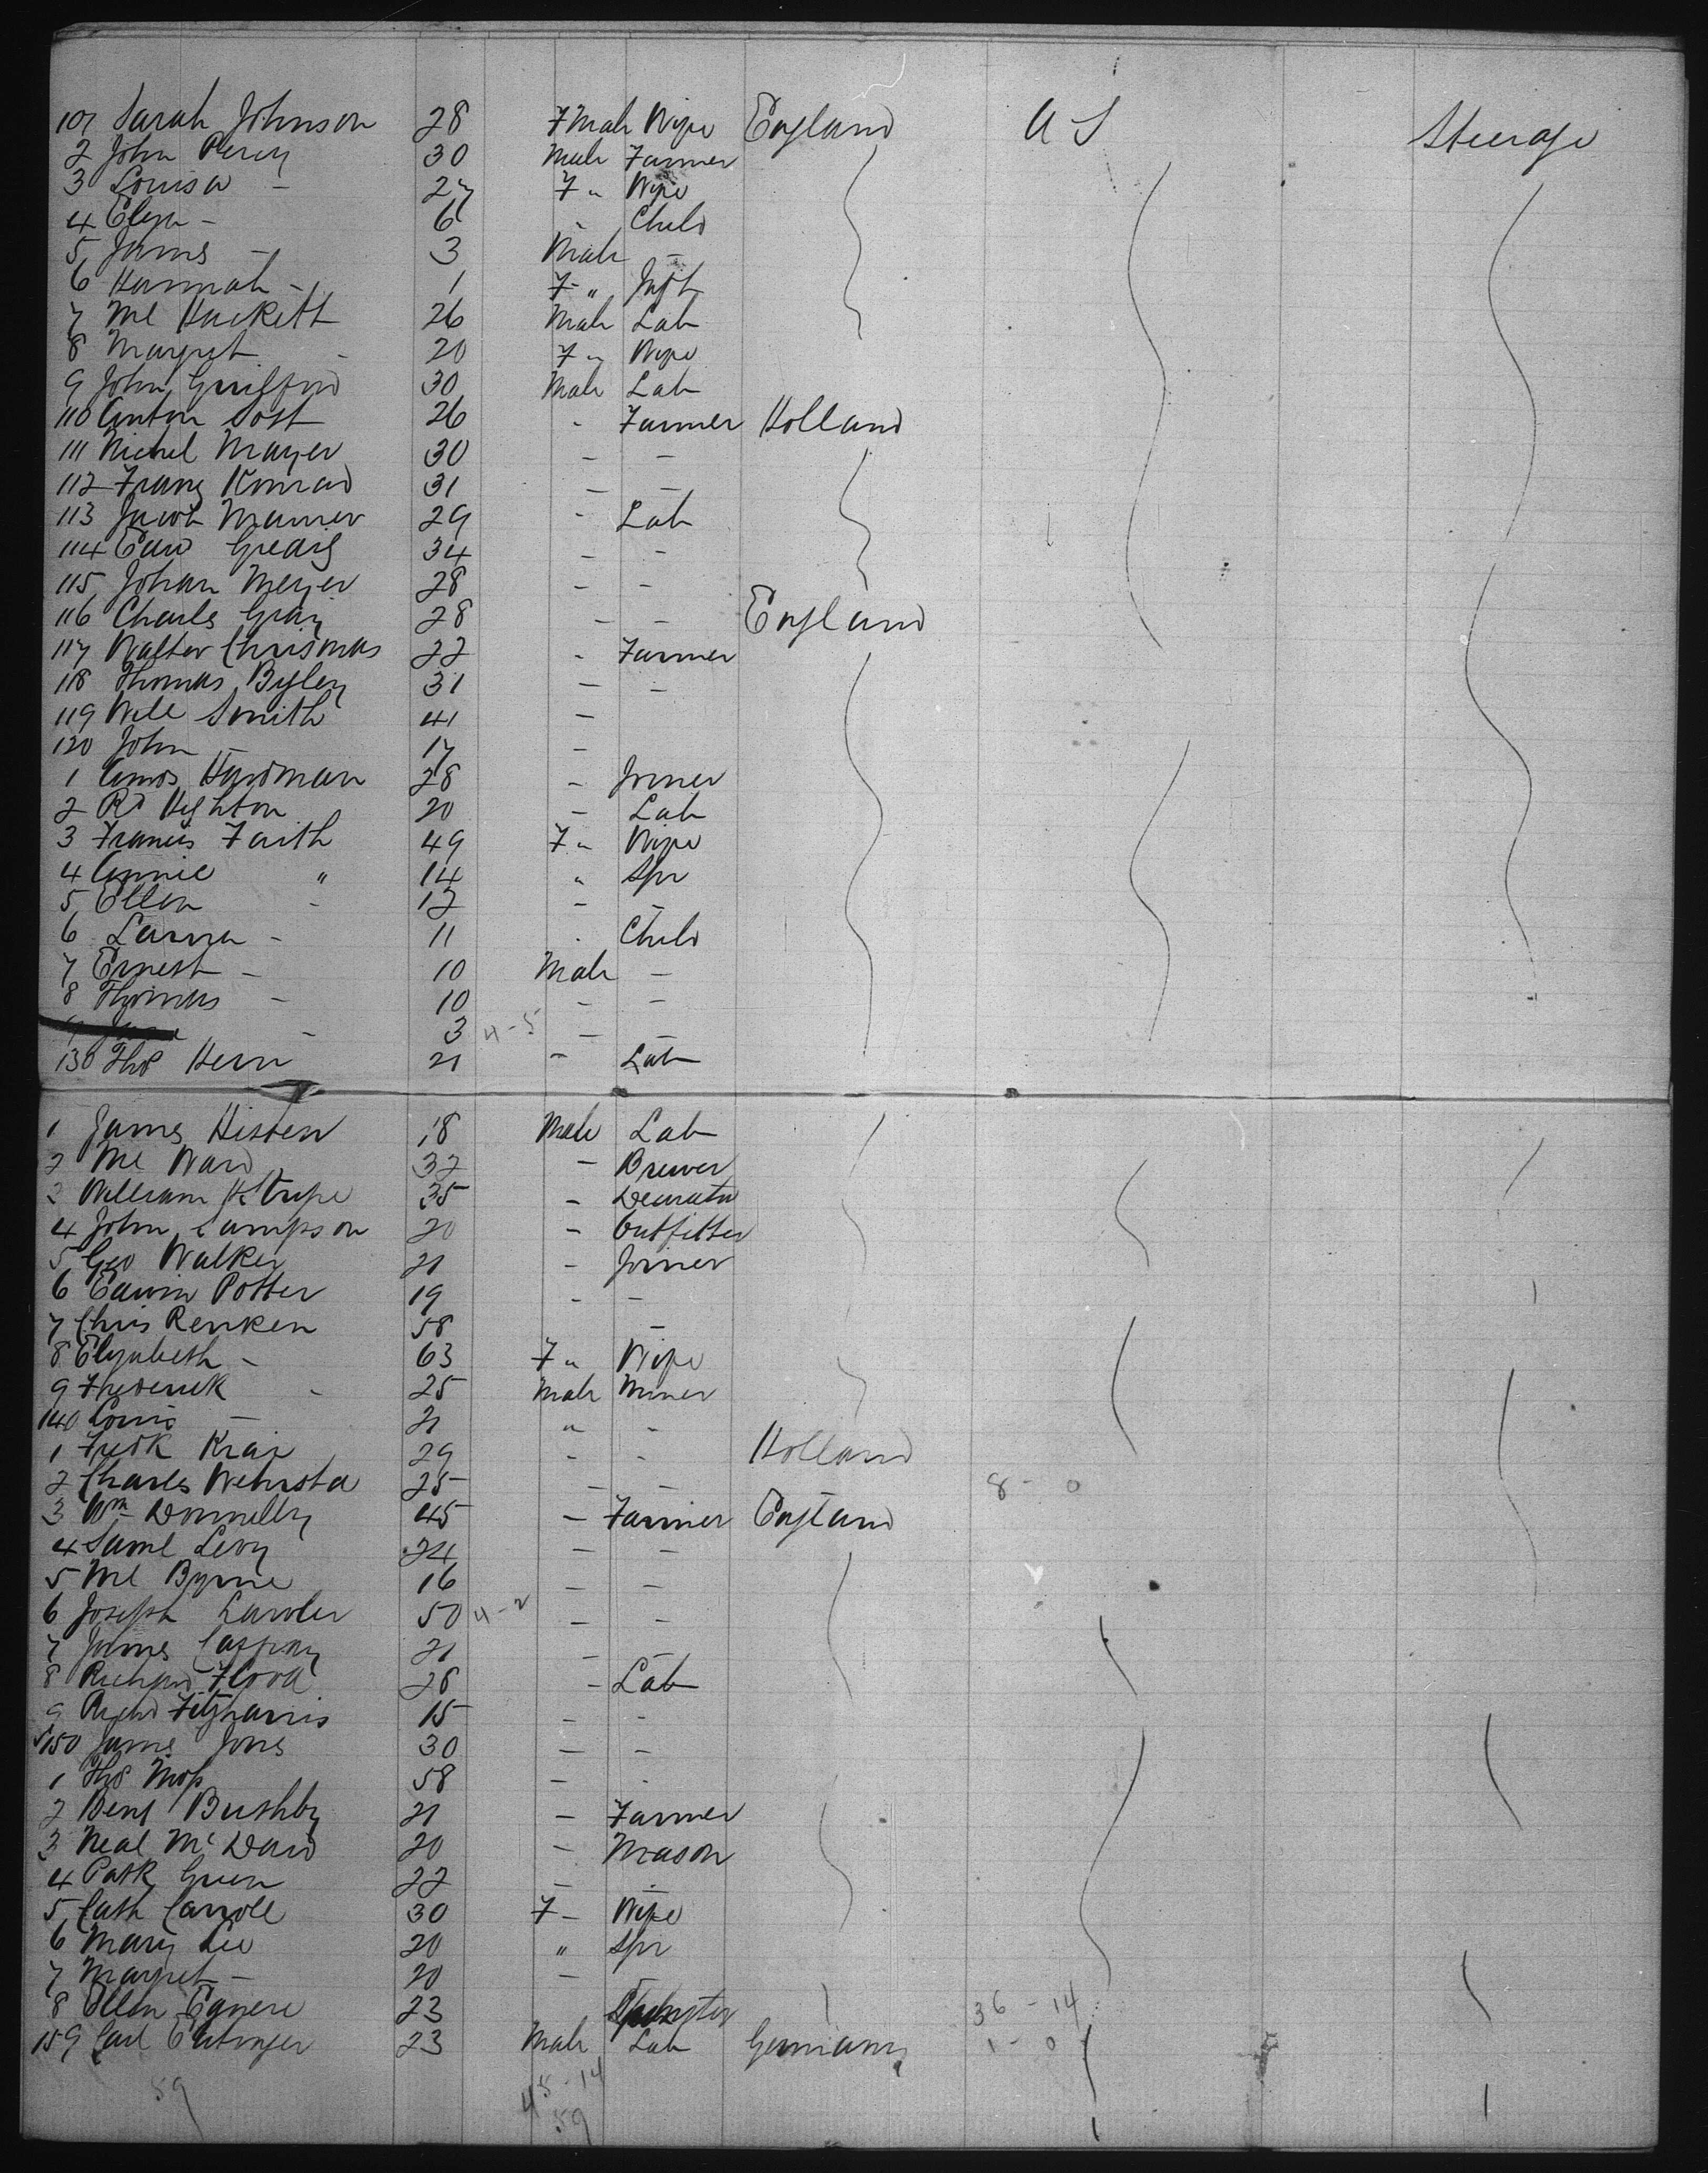 101 Sarah Johnson 28 Fmale Wife England U S Steerage
2 John Percy 30 Male Farmer
3 Louisa - 27 F " Wife
4 Eliza - 6 - Child
5 James - 3 Male -
6 Hannah - 1 F " Inft
7 Ml Hackett 26 Male Lab
8 Margret - 20 F " Wife
9 John Guilford 30 Male Lab
110 Anton Sost 26 - Farmer Holland
111 Michel Mayer 30 - -
112 Franz Konrad 31 - -
113 Jacob 29 - Lab
114 Edw 34 - -
115 Johan Meyer 28 - -
116 Charles Gray 28 - - England
117 Walter Chrismas 22 - Farmer
118 Thomas Byley 31 - -
119 Will Smith 41 -
120 John - 17 -
1 Amos Hardman 28 - Joiner
2 Rd Highton 20 - Lab
3 Francis Faith 49 F " Wife
4 Annie " 14 " Spr
5 Ellen - 12 - -
6 Laura - 11 - Child
7 Ernest - 10 Male -
8 Thomas - 10 - -
- 3 4-5 - -
130 Thos Hern 21 - Lab
1 James Hisben 18 Male Lab
2 Ml Ward 32 - Brewer
3 William H. Cripe 35 - Decorator
4 John Sampson 20 - Outfitter
5 Geo Walker 21 - Joiner
6 Edwin Potter 19 - -
7 Chris Renken 58 -
8 Elizabeth - 63 F " Wife
9 Frederick - 25 Male Miner
140 Louis - 21 " -
1 Fredk 29 - - Holland
2 Charles 25 - - 8 - 0
3 Wm Donnelly 45 - Farmer England
4 Saml Levy 24 - -
5 Ml Byrne 16 - -
6 Joseph Lawler 50 4-2 - -
7 James 21 - -
8 Richard Flood 26 - Lab
9 Richd Fitzharris 15 - -
150 James Jones 30 - -
1 Thos Moss 58 - -
2 Benj Bushby 21 - Farmer
3 Neal Mc David 20 - Mason
4 Patk Green 22 - -
5 Cath Carroll 30 F - Wife
6 Mary Lee 20 " Spr
7 Margret - 20 - -
8 Ellen 23 Spinster 36 - 14
159 Carl 23 Male Lab Germany 1 - 0
59 45-14
59